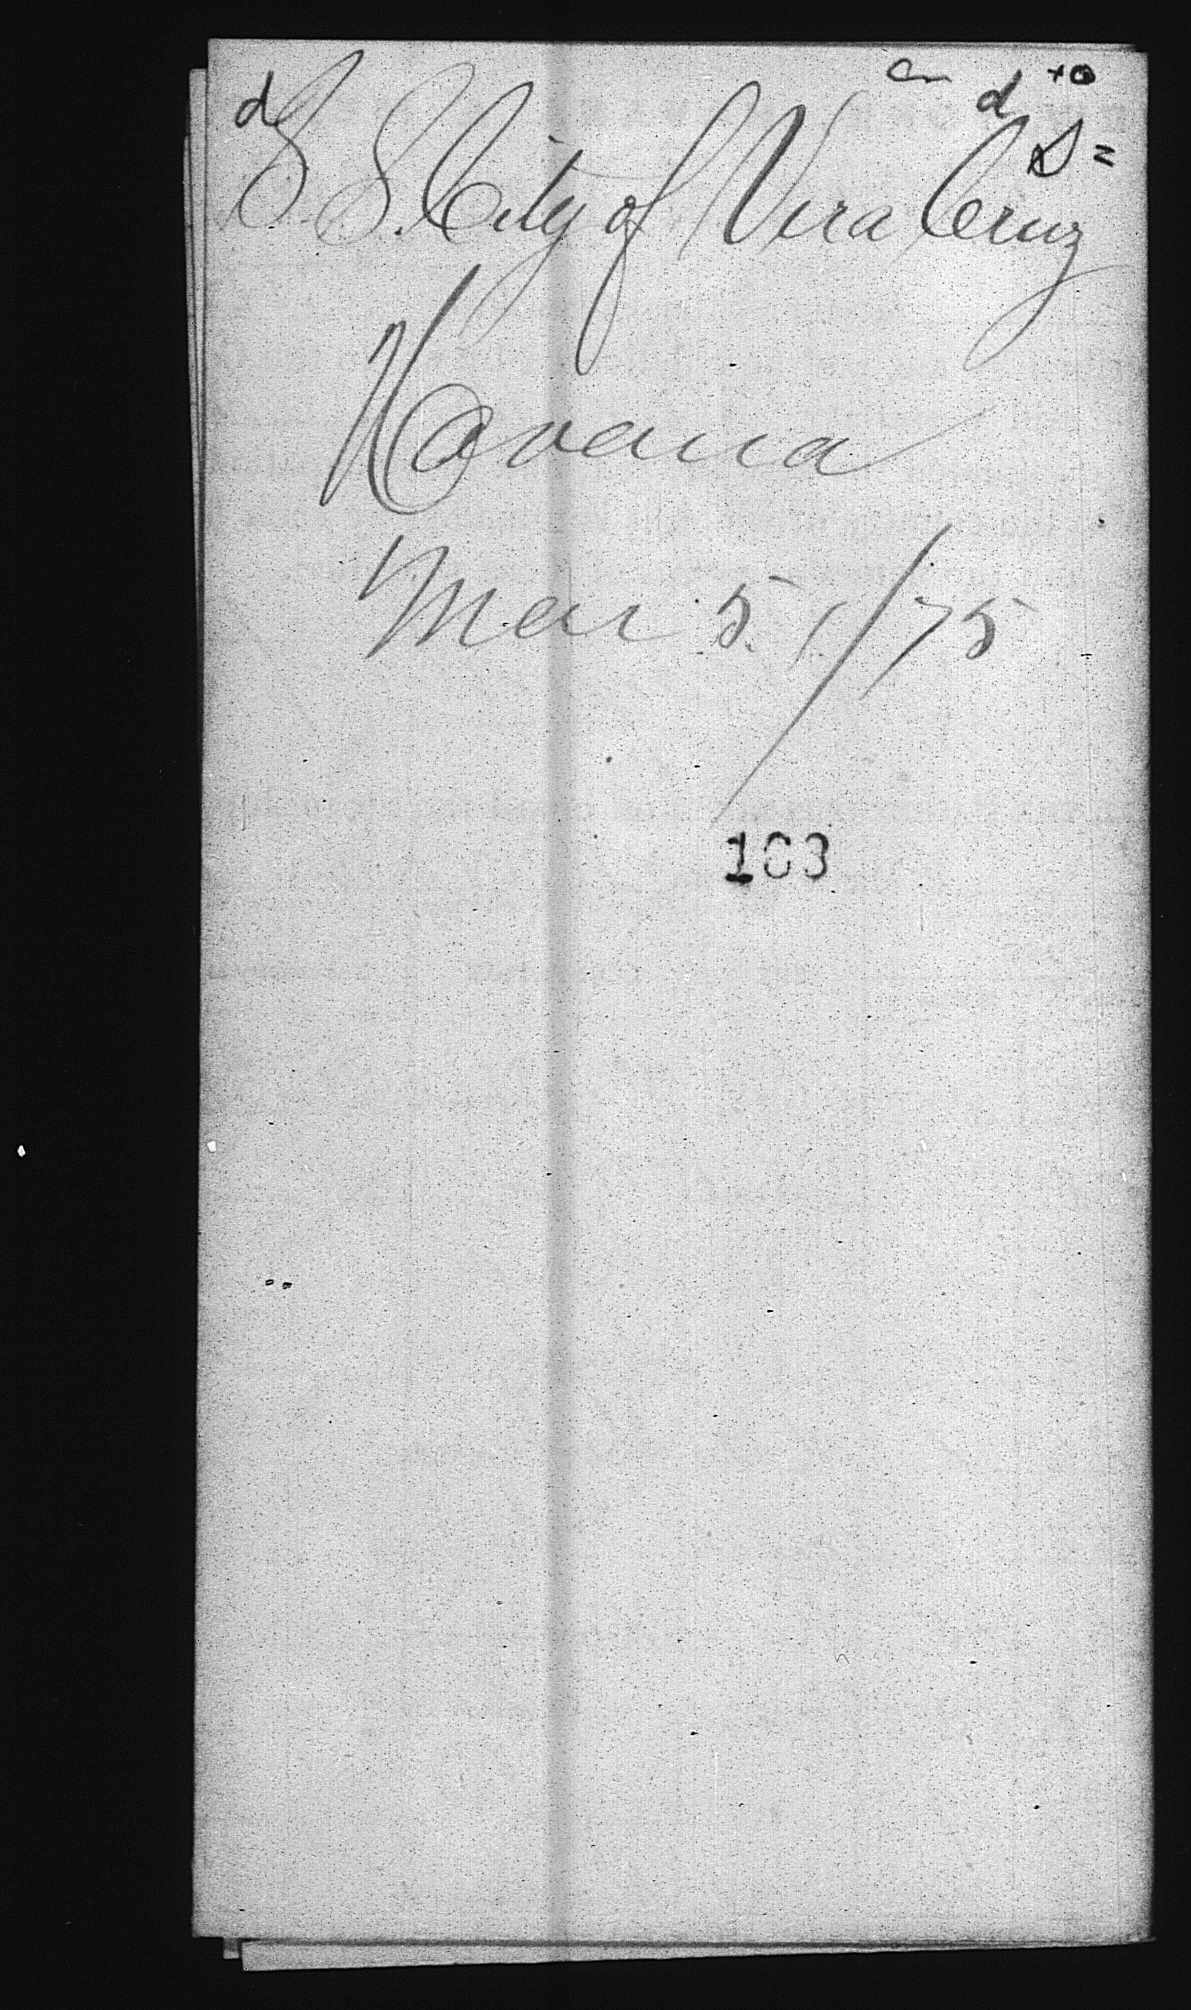 d
d
S. S. City of Vera Cruz
Havana
Mar 5. /75
103